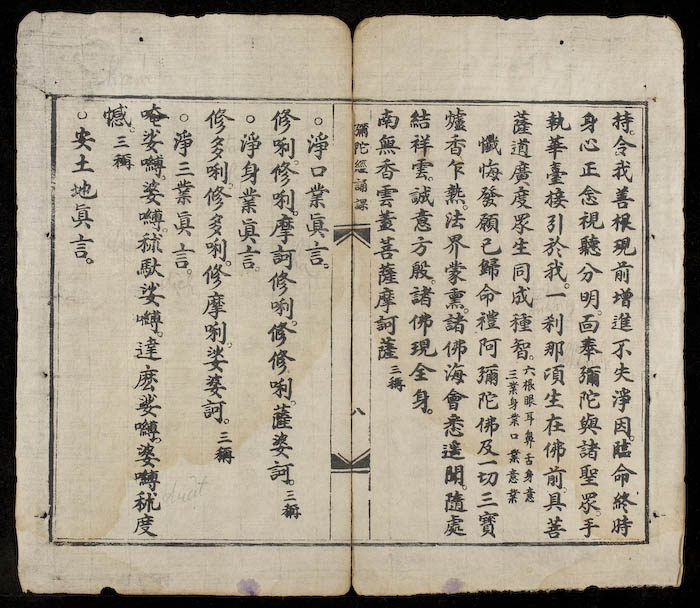 持。令我善根現前增進。不失淨因。臨命終時
身心正念。視聽分明。面奉彌陀與諸聖眾。手
執華臺。接引於我。一刹那頃。生在佛前。具菩
薩道。廣度眾生。同成種智。六根眼耳鼻舌身意
三業身業口業意業
懺悔發願已歸命禮阿彌陀佛及一切三寶
爐香乍爇。法界蒙熏。諸佛海會悉遙聞。隨處
結祥雲。誠意方殷。諸佛現全身。
南無香雲蓋菩薩摩訶薩三稱
彌陀經誦課
八
○淨口業眞言。
修唎。修唎。摩訶修唎。修修唎。薩婆訶。三稱
○淨身業眞言。
修多唎。修多唎。修摩唎。娑婆訶。三稱
○淨三業眞言。
唵。娑嚩。婆嚩。秫馱。娑嚩。達麽。娑嚩。婆嚩秫度
憾。三稱
○安土地眞言。